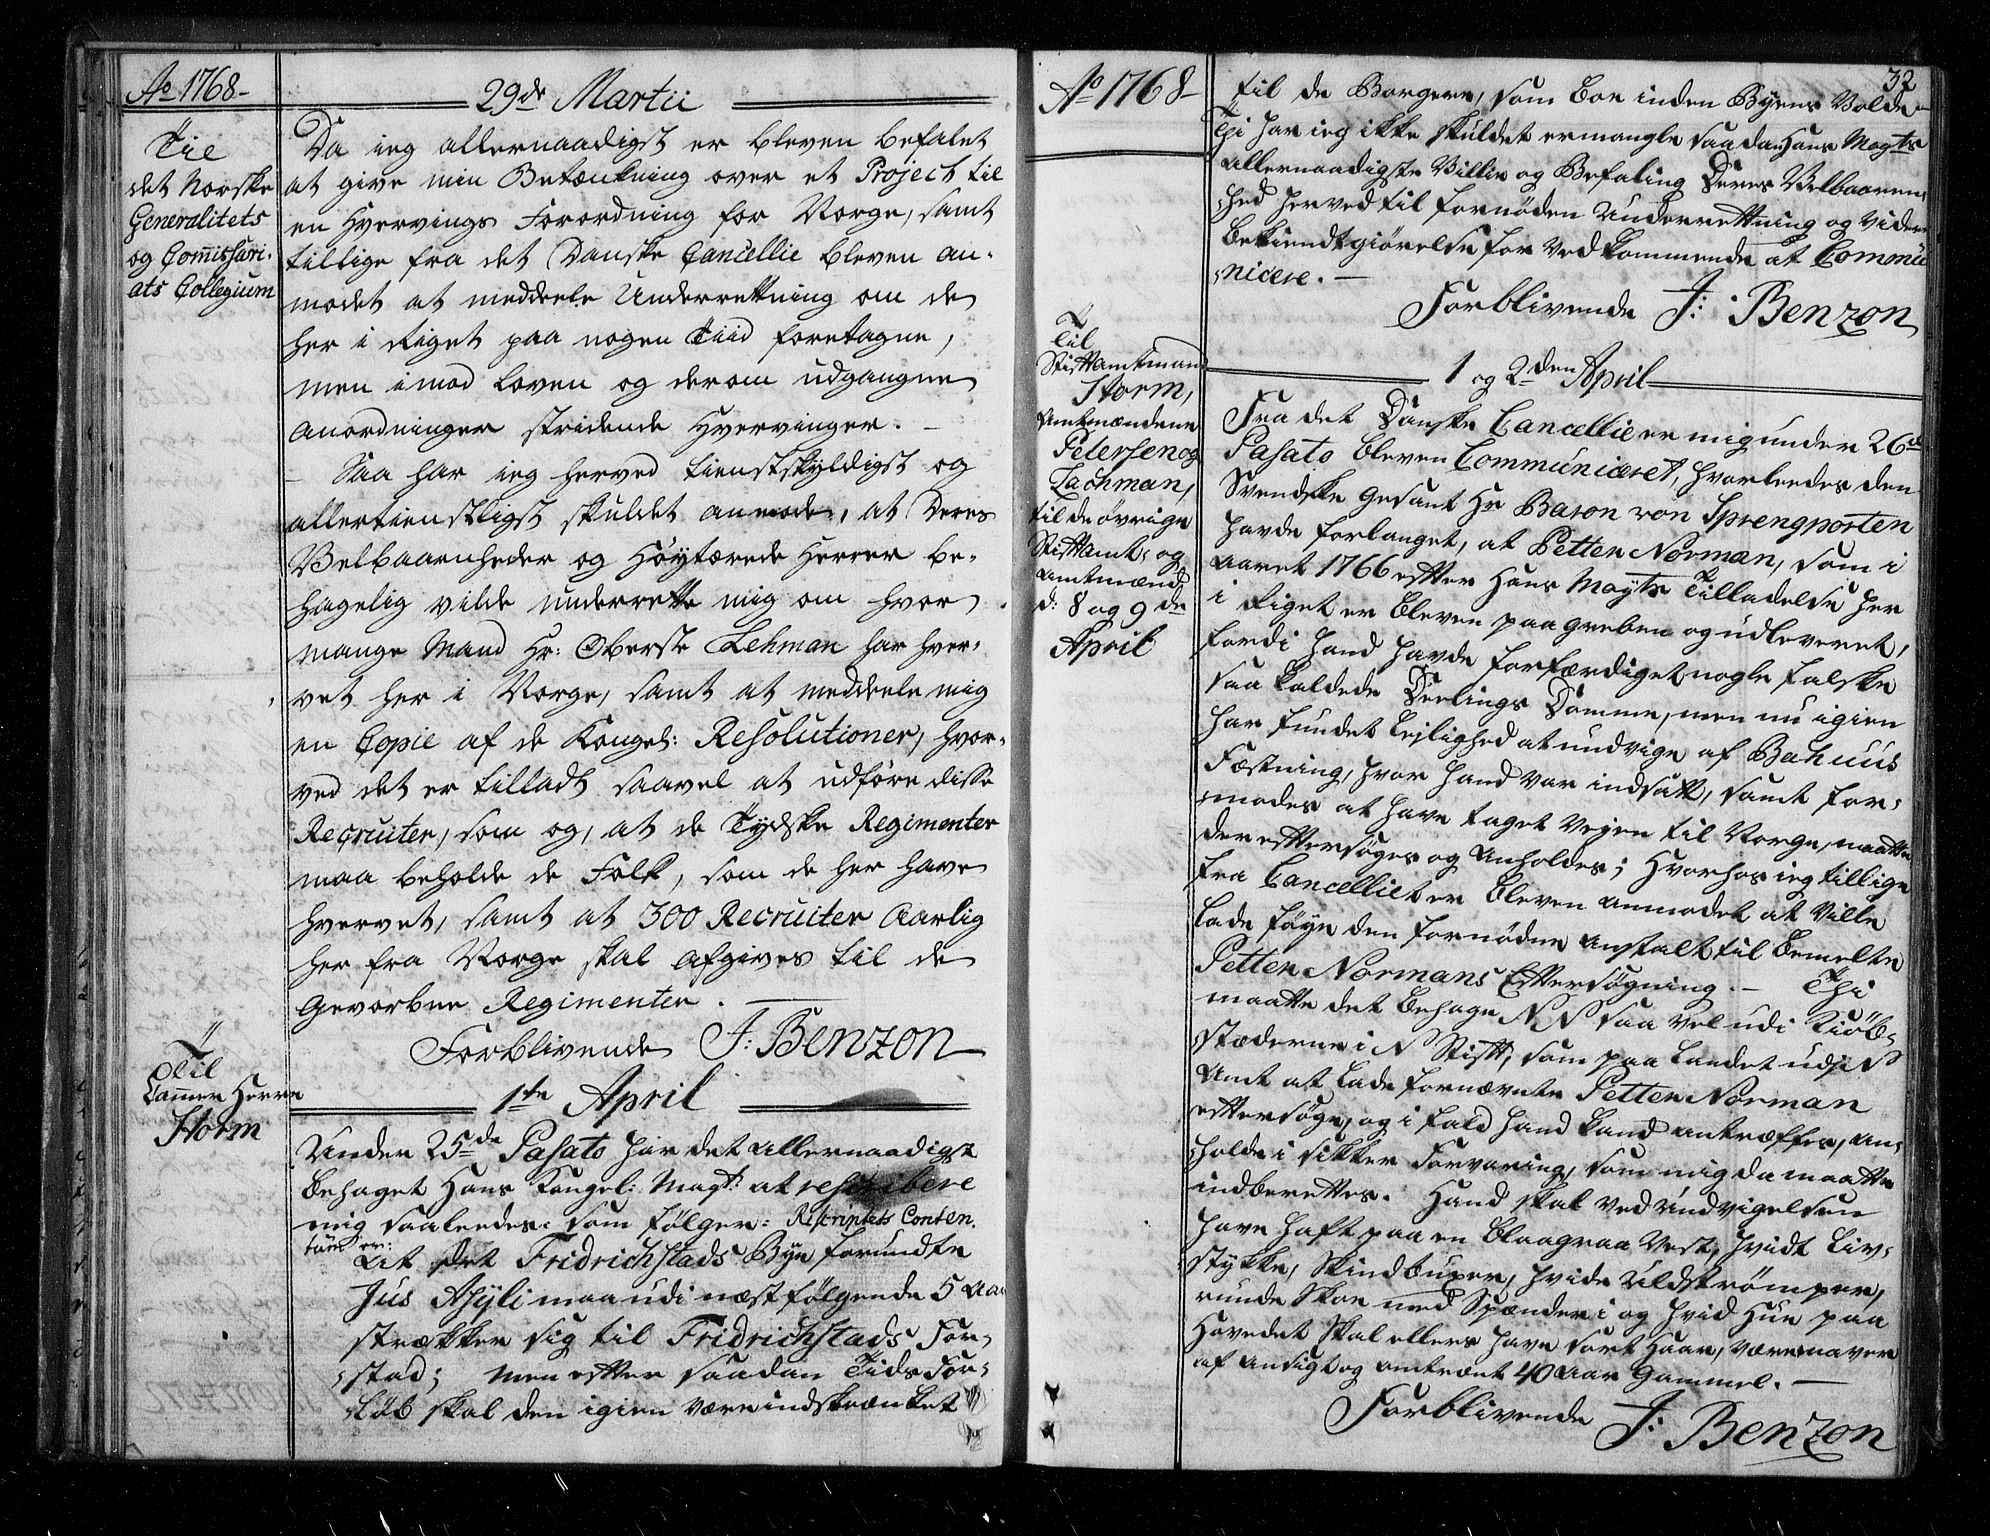 Ao 1768-
29de Martii
Til
det Norske
Generalitets
og Comissari-
ats Collegium
Da ieg allernaadigst er bleven befalet
at give min Betænkning over et Project til
en Hvervings Forordning for Norge, samt
tillige fra det Danske Cancellie bleven an-
modet at meddeele Underrettning om de
her i Riget paa nogen Tiid foretagne,
men imod Loven og derom udgangne
Anordninger stridende Hvervinger. -
- Saa har ieg herved tienstskyldigst og
allertienstligst skuldet anmode, at Deres
Velbaarnheder og Høytærede Herrer be-
hagelig vilde underrette mig om hvor
mange Mand Hr: Oberste Lehman har hver-
vet her i Norge, samt at meddeele mig
en Copie af de Kongel: Resolutioner, hvor-
ved det er tilladt saavel at udføre disse
Recruiter, som og, at de Tydske Regimenter
maa beholde de Folk, som de her have
hvervet, samt at 300 Recruiter Aarlig
her fra Norge skal afgives til de
Gevorbne Regimenter. -
Forblivende J: Benzon
1te April
Til
Cammer Herre
Storm
Under 25de Pasato har det allernaadigst
behaget Hans Kongel: Mayt: at rescribere
mig saaledes som følger: Rescriptets Conten.
tum er:
At det Fridrichstads Bye forundte
Jus Asyli maa udi næstfølgende 5 Aar
strække sig til Fridrichstads For-
stad; men efter saadan Tids For-
løb skal den igien være indskrænket
Ao 1768-
32
til de Borgere, som boe inden Byens Volde-
Thi har ieg ikke skuldet ermangle saadan Hans Mayts
allernaadigste Villie og Befaling Deres Velbaaren-
hed herved til fornøden Underrettning og videre
bekiendtgiørelse for Vedkommende at Comonu-
nicere. -
Forblivende J: Benzon
1 og 2den April
Til
Stiftamtmand
Storm,
Amtmændene
Petersen og
Lachman,
til de øvrige
Stiftamt- og
Amtmænd
d: 8 og 9de
April
Fra det Danske Cancellie er mig under 26de
Pasato bleven Communiceret, hvorleedes den
Svendske Gesant Hr Baron von Sprengporten
havde forlanget, at Petter Norman, som i
Aaret 1766 efter Hans Mayts Tilladelse her
i Riget er bleven paagreben og udleveret,
fordi hand havde forfærdiget nogle falske
saa kaldede Deelings Domme, men nu igien
har fundet Lejlighed at undvige af Bahuus
Fæstning, hvor hand var indsatt, samt for-
modes at have taget Vejen til Norge, maatte
der eftersøges og Anholdes; Hvorhos ieg tillige
fra Cancelliet er bleven anmodet at ville
lade føye den fornødne Anstalt til bemelte
Petter Normans Eftersøgning. - Thi
maatte det behage N N saa vel udi Kiøb-
stæderne i N Stift, som paa Landet udi N
Amt at lade fornævnte Petter Norman
eftersøge, og i fald hand kand antræffes, an-
holde i sikker Forvaring, som mig da maatte
indberettes. Hand skal ved Undvigelsen
have haft paa en blaagraa Vest, hvidt Liv-
stykke, Skindbuxer, hvide Uldstrømper,
runde Skoe med Spænder i og hvid Hue paa
Hovedet skal ellers have sort Haar, være maver
af Ansigt og omtrent 40 Aar Gammel. -
Forblivende J: Benzon